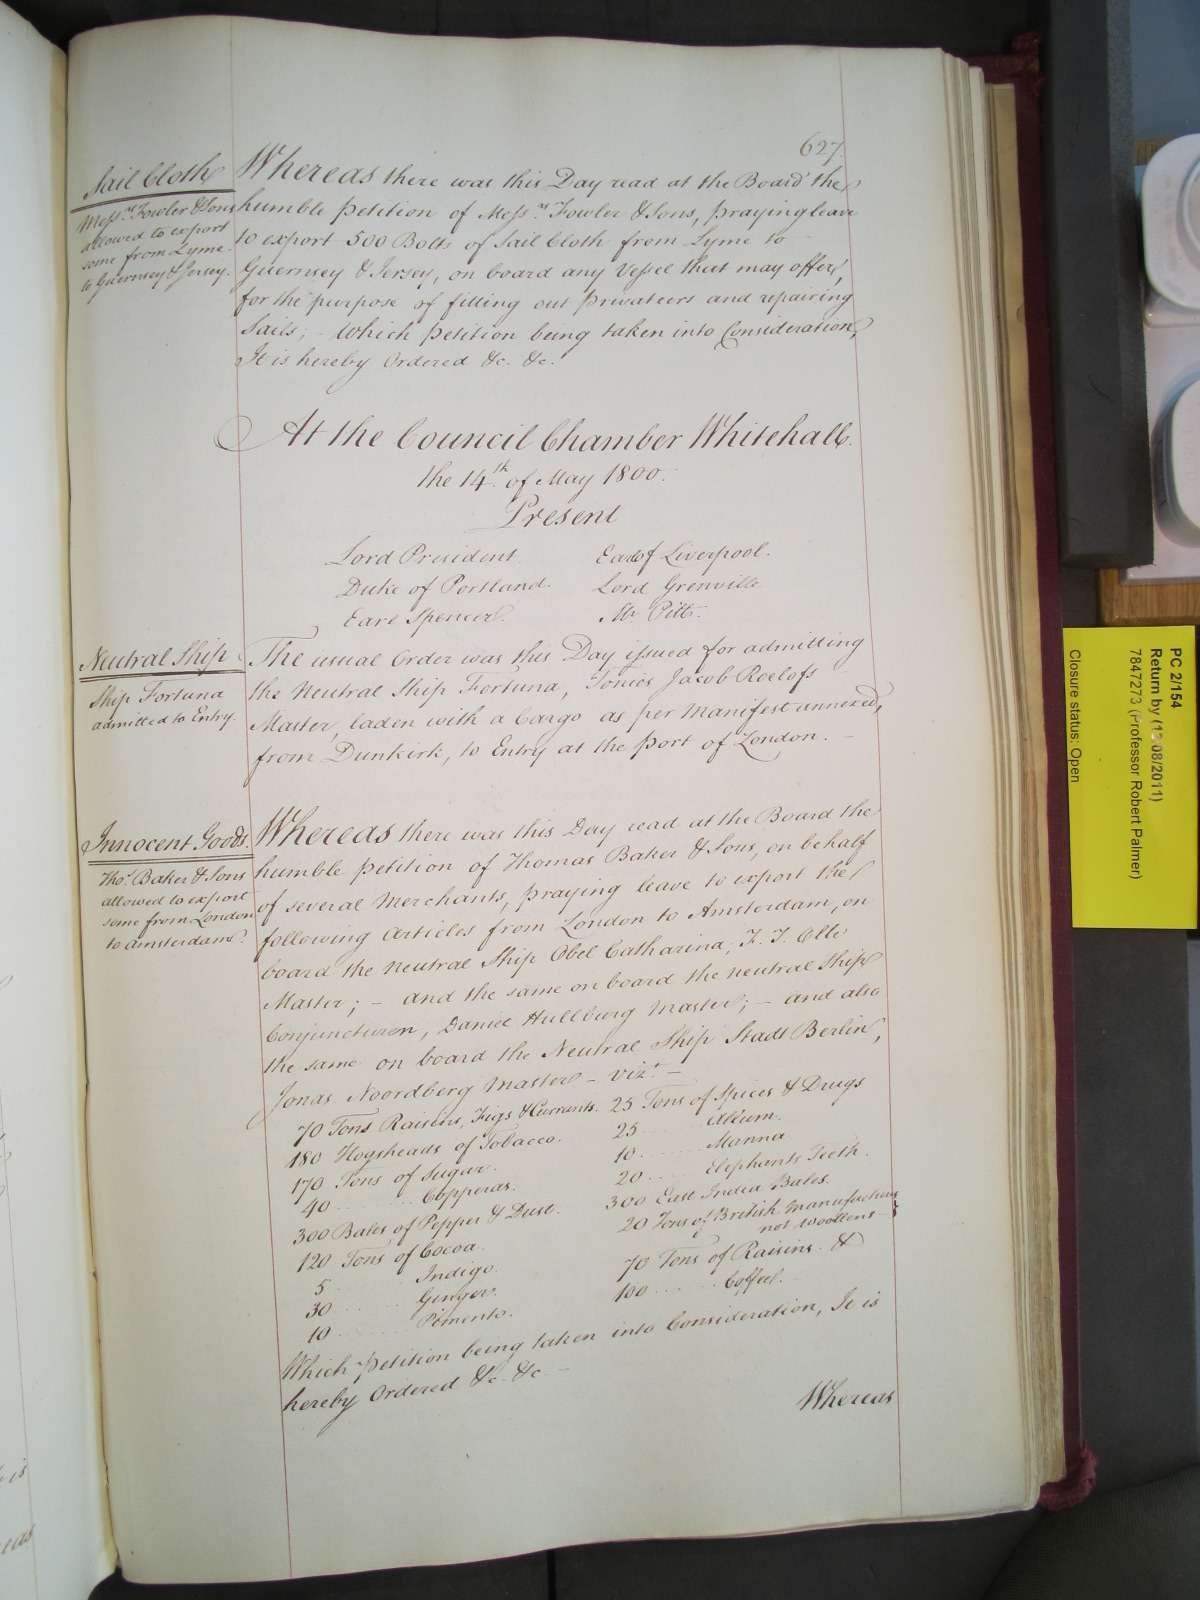 627.
Sail Cloth
Messrs. Fowler & Sons
allowed to export
some from Lyme
to Guernsey & Jersey.
Whereas there was this Day read at the Board the
humble Petition of Messrs. Fowler & Sons, praying leave
to export 500 Bolts of Sail Cloth from Lyme to
Guernsey & Jersey, on board any Vessel that may offer,
for the purpose of fitting out Privateers and repairing
Sails; - Which Petition being taken into Consideration,
It is hereby Ordered &c. &c.
At the Council Chamber Whitehall.
the 14th. of May 1800.
Present
Lord President. Earl of Liverpool.
Duke of Portland. Lord Grenville
Earl Spencer. Mr. Pitt.
Neutral Ship
Ship Fortuna
admitted to Entry.
The usual Order was this Day issued for admitting
the Neutral Ship Fortuna, Tonies Jacob Roelofs
Master, laden with a Cargo as per Manifest annexed,
from Dunkirk, to Entry at the Port of London. -
Innocent Goods.
Thos. Baker & Sons
allowed to export
some from London
to Amsterdam.
Whereas there was this Day read at the Board the
humble Petition of Thomas Baker & Sons, on behalf
of several Merchants, praying leave to export the
following Articles from London to Amsterdam, on
board the Neutral Ship Obel Catharina, F. J. Olle
Master; - and the same on board the neutral Ship
Conjuncturen, Daniel Hullburg Master; - and also
the same on board the Neutral Ship Stadt Berlin,
Jonas Noordberg Master - vizt. -
70 Tons Raisins, Figs & Currants. 25 Tons of Spices & Drugs
180 Hogsheads of Tobacco. 25 ...... Allum.
170 Tons of Sugar. 10 ...... Manna.
40 ...... Copperas. 20 ...... Elephants Teeth.
300 Bales of Pepper & Dust. 300 East India Bales.
120 Tons of Cocoa. 20 Tons of British Manufactures
not Woollens
5 ...... Indigo. 70 Tons of Raisins. &
30 ...... Ginger. 100 ...... Coffee.
10 ...... Pimento.
Which Petition being taken into Consideration, It is
hereby Ordered &c. &c. -
Whereas
PC 2/154
Return by (1 08/2011)
7847273 (Professor Robert Palmer)
Closure status: Open